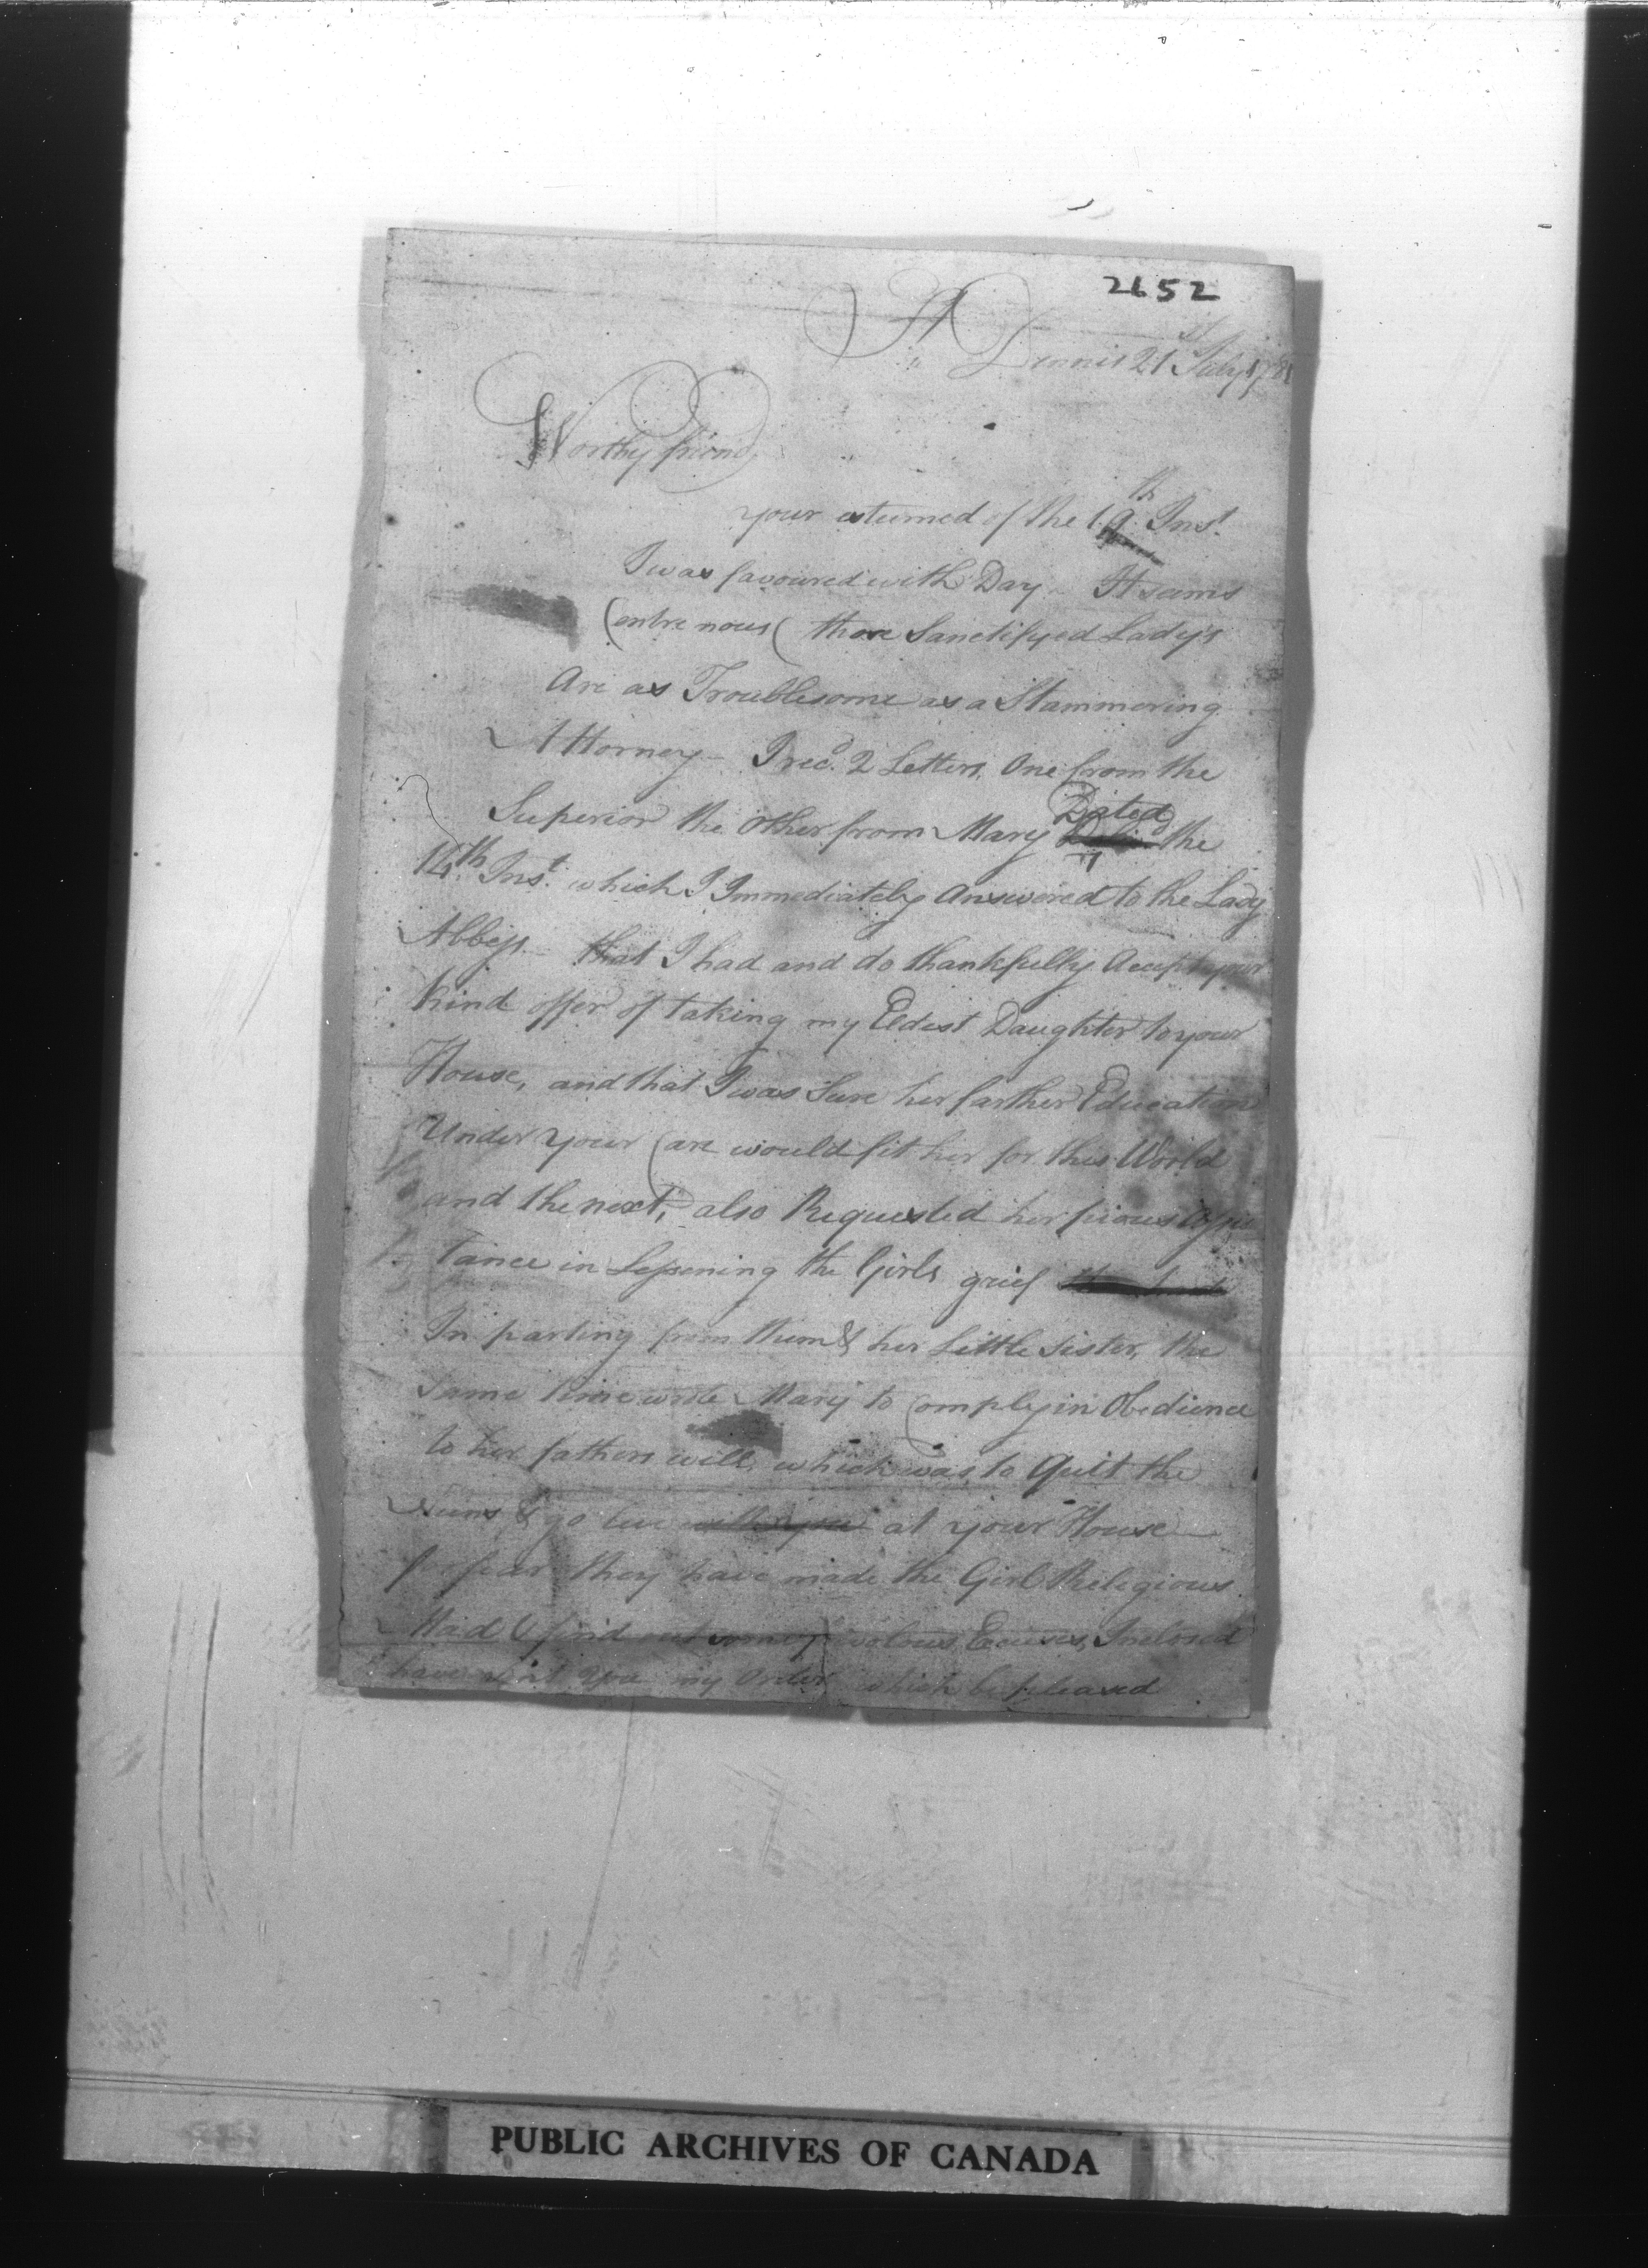 2652
St
Dennis 21st July 1781
Worthy friend,
your esteemed of the 19th Inst.
I was favoured with Day - It seams
(entre nous( those Sanctifyed Lady's
Are as Troublesome as a Stammering
Attorney - I recd. 2 Letters, One from the
Superior the Other from Mary Dated the
14th Inst. which I Immediately Answered to the Lady
Abbess - that I had and do thankfully Accept your
kind offer of taking my Eldest Daughter to your
House, and that I was Sure her farther Education
Under your Care would fit her for this World
and the next, also Requested her pious Assis
tance in Lessening the Girls grief
In parting from them & her Little Sister, the
Same time wrote Mary to Comply in Obedience
to her fathers will, which was to Quit the
Nuns & go live with you at your House
fear they have made the Girl Religious
Mad & find out some frivolous Excuses, Inclosed
have sent you my Order which be pleased
PUBLIC ARCHIVES OF CANADA